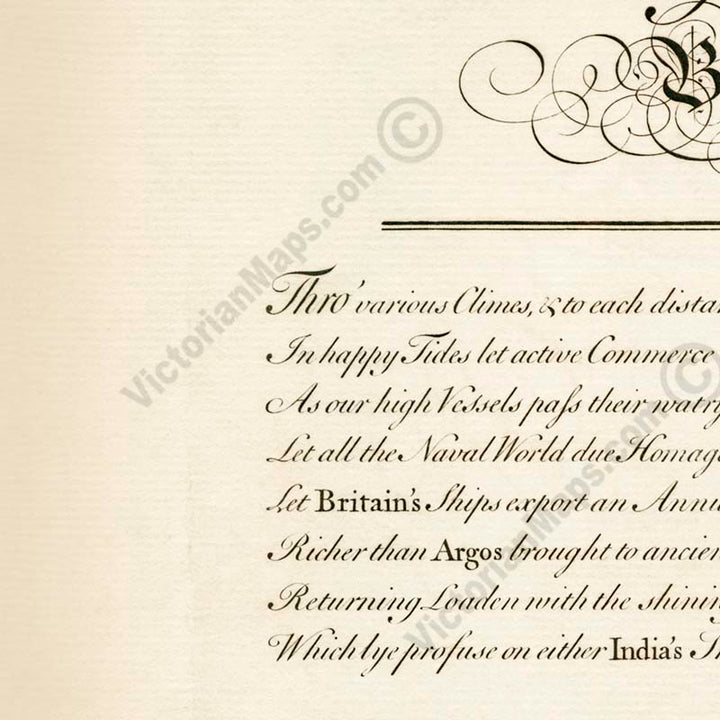 B
Thro' various Climes, & to each dista
In happy Tides let active Commerce
As our high Vessels paſs their watry
Let all the Naval World due Homag
Let Britain's Ships export an Annu
Richer than Argos brought to ancien
Returning Loaden with the shinin
Which lye profuse on either India's Sh
© VictorianMaps.com
© VictorianMaps.com